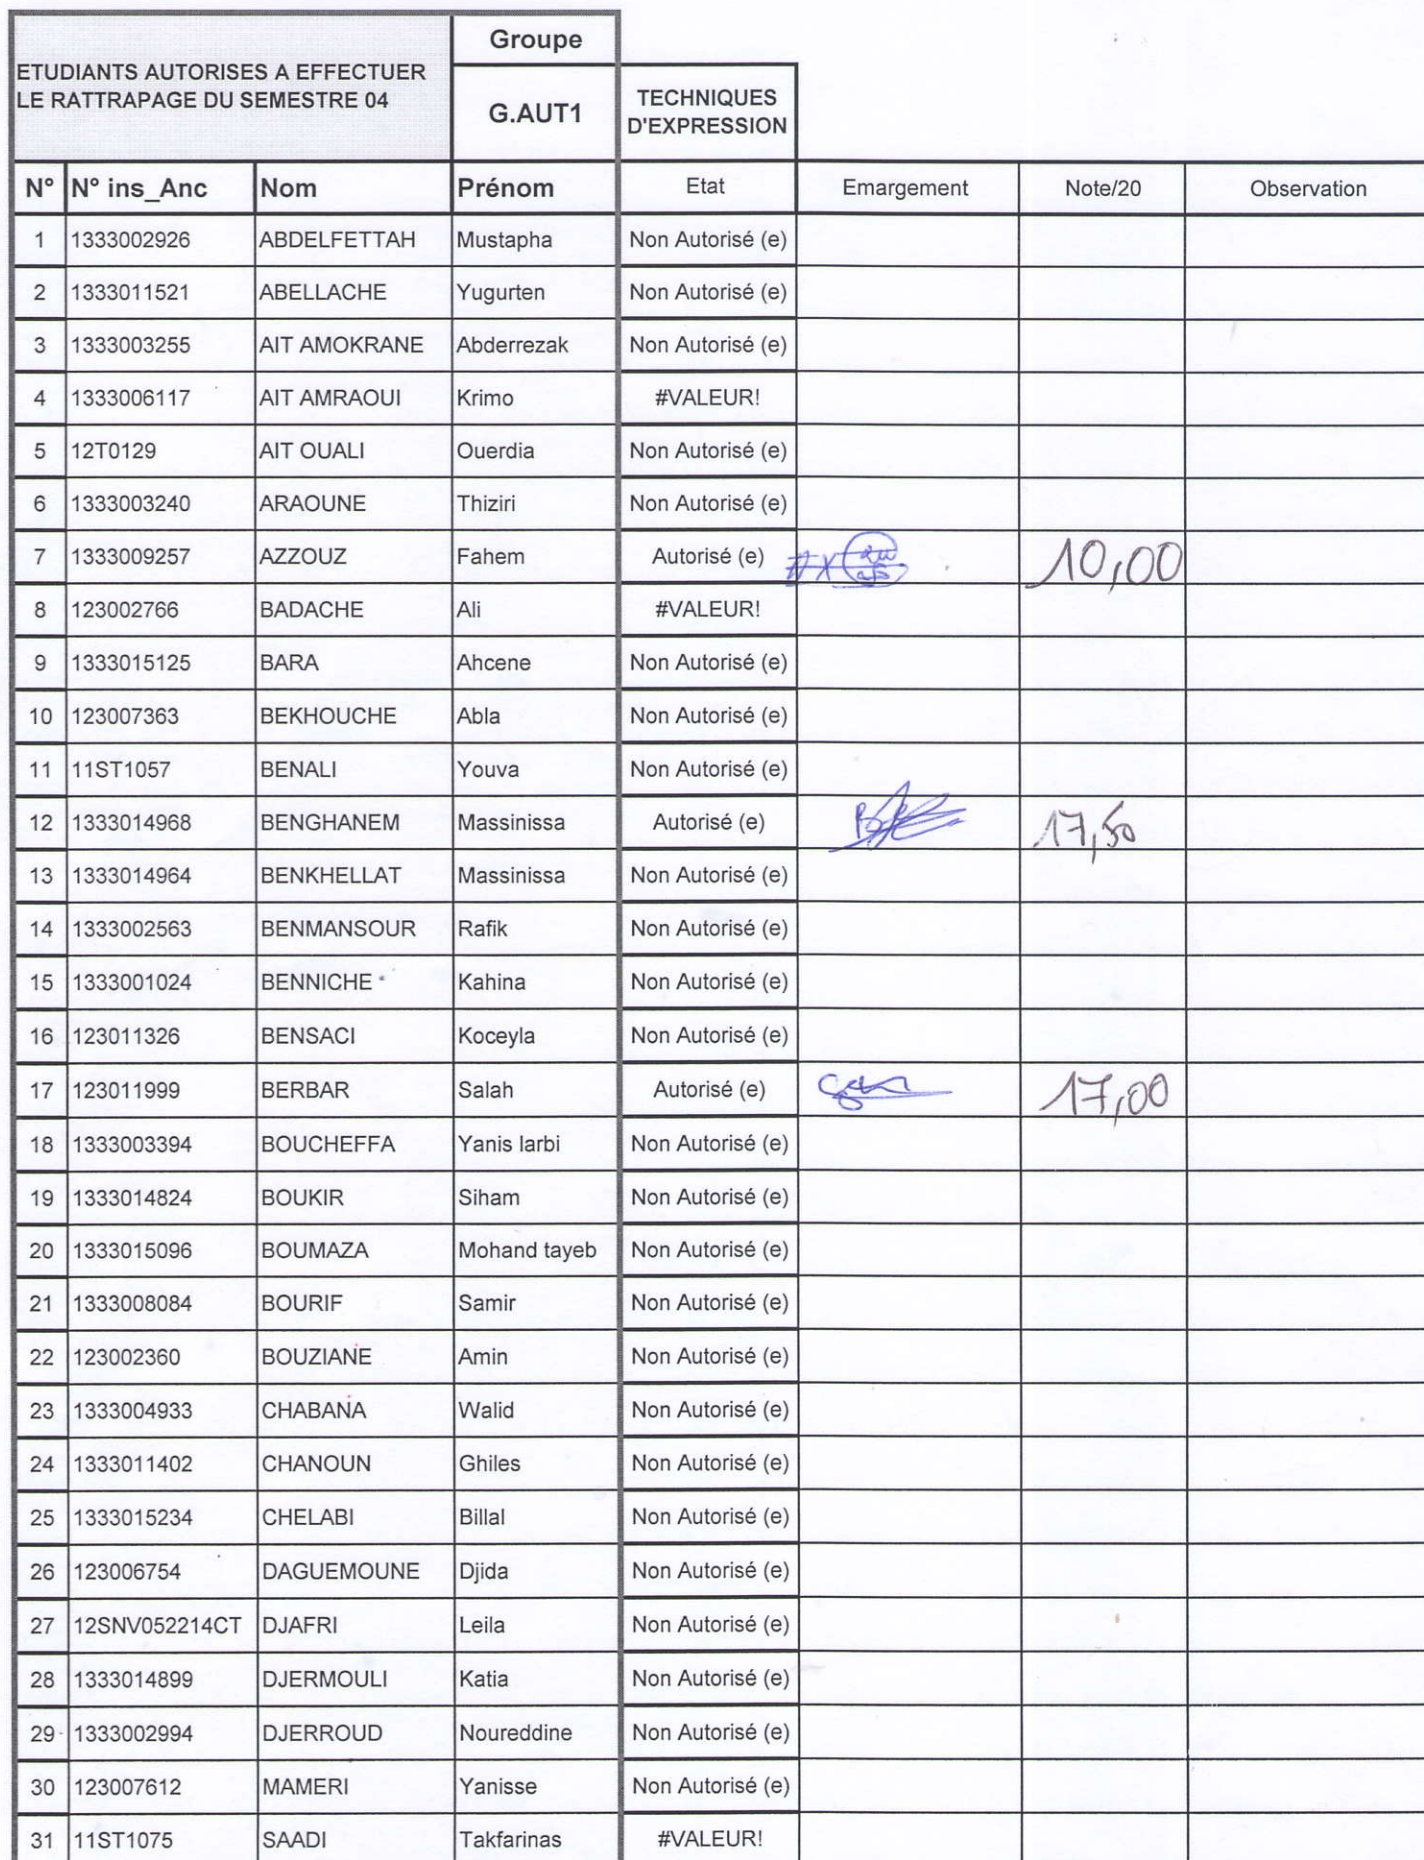 ETUDIANTS AUTORISES A EFFECTUER
LE RATTRAPAGE DU SEMESTRE 04
Groupe
G.AUT1
TECHNIQUES
D'EXPRESSION
N° N° ins_Anc Nom Prénom Etat Emargement Note/20 Observation
1 1333002926 ABDELFETTAH Mustapha Non Autorisé (e)
2 1333011521 ABELLACHE Yugurten Non Autorisé (e)
3 1333003255 AIT AMOKRANE Abderrezak Non Autorisé (e)
4 1333006117 AIT AMRAOUI Krimo #VALEUR!
5 12T0129 AIT OUALI Ouerdia Non Autorisé (e)
6 1333003240 ARAOUNE Thiziri Non Autorisé (e)
7 1333009257 AZZOUZ Fahem Autorisé (e) 10,00
8 123002766 BADACHE Ali #VALEUR!
9 1333015125 BARA Ahcene Non Autorisé (e)
10 123007363 BEKHOUCHE Abla Non Autorisé (e)
11 11ST1057 BENALI Youva Non Autorisé (e)
12 1333014968 BENGHANEM Massinissa Autorisé (e) 17,50
13 1333014964 BENKHELLAT Massinissa Non Autorisé (e)
14 1333002563 BENMANSOUR Rafik Non Autorisé (e)
15 1333001024 BENNICHE Kahina Non Autorisé (e)
16 123011326 BENSACI Koceyla Non Autorisé (e)
17 123011999 BERBAR Salah Autorisé (e) 17,00
18 1333003394 BOUCHEFFA Yanis larbi Non Autorisé (e)
19 1333014824 BOUKIR Siham Non Autorisé (e)
20 1333015096 BOUMAZA Mohand tayeb Non Autorisé (e)
21 1333008084 BOURIF Samir Non Autorisé (e)
22 123002360 BOUZIANE Amin Non Autorisé (e)
23 1333004933 CHABANA Walid Non Autorisé (e)
24 1333011402 CHANOUN Ghiles Non Autorisé (e)
25 1333015234 CHELABI Billal Non Autorisé (e)
26 123006754 DAGUEMOUNE Djida Non Autorisé (e)
27 12SNV052214CT DJAFRI Leila Non Autorisé (e)
28 1333014899 DJERMOULI Katia Non Autorisé (e)
29 1333002994 DJERROUD Noureddine Non Autorisé (e)
30 123007612 MAMERI Yanisse Non Autorisé (e)
31 11ST1075 SAADI Takfarinas #VALEUR!